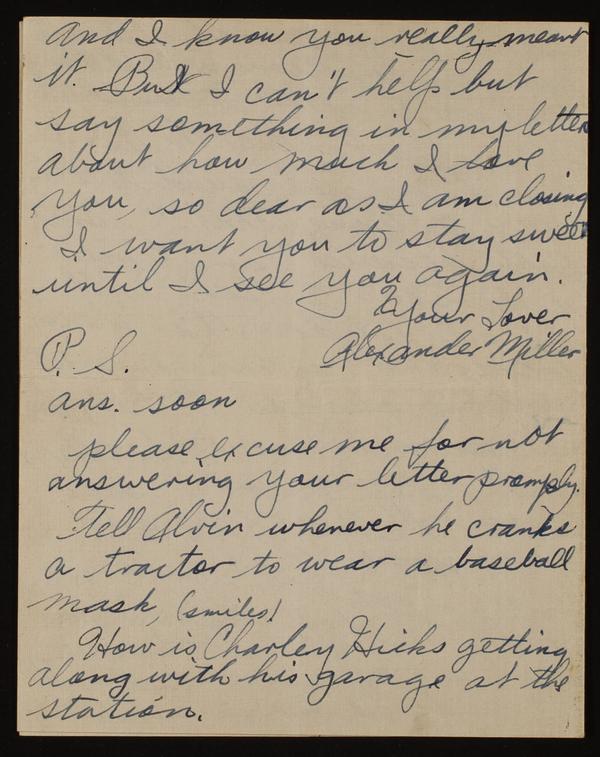 and I know you really meant
it. But I can't help but
say something in my letter
about how much I love
you, so dear as I am closing
I want you to stay sweet
until I see you again.
Your Lover
Alexander Miller
P. S.
ans. soon
please excuse me for not
answering your letter promply.
Tell Alvin whenever he cranks
a tractor to wear a baseball
mask, (smiles)
How is Charley Hicks getting
along with his garage at the
station.